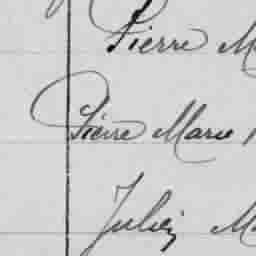 Pierre
Pierre Marie
Julien